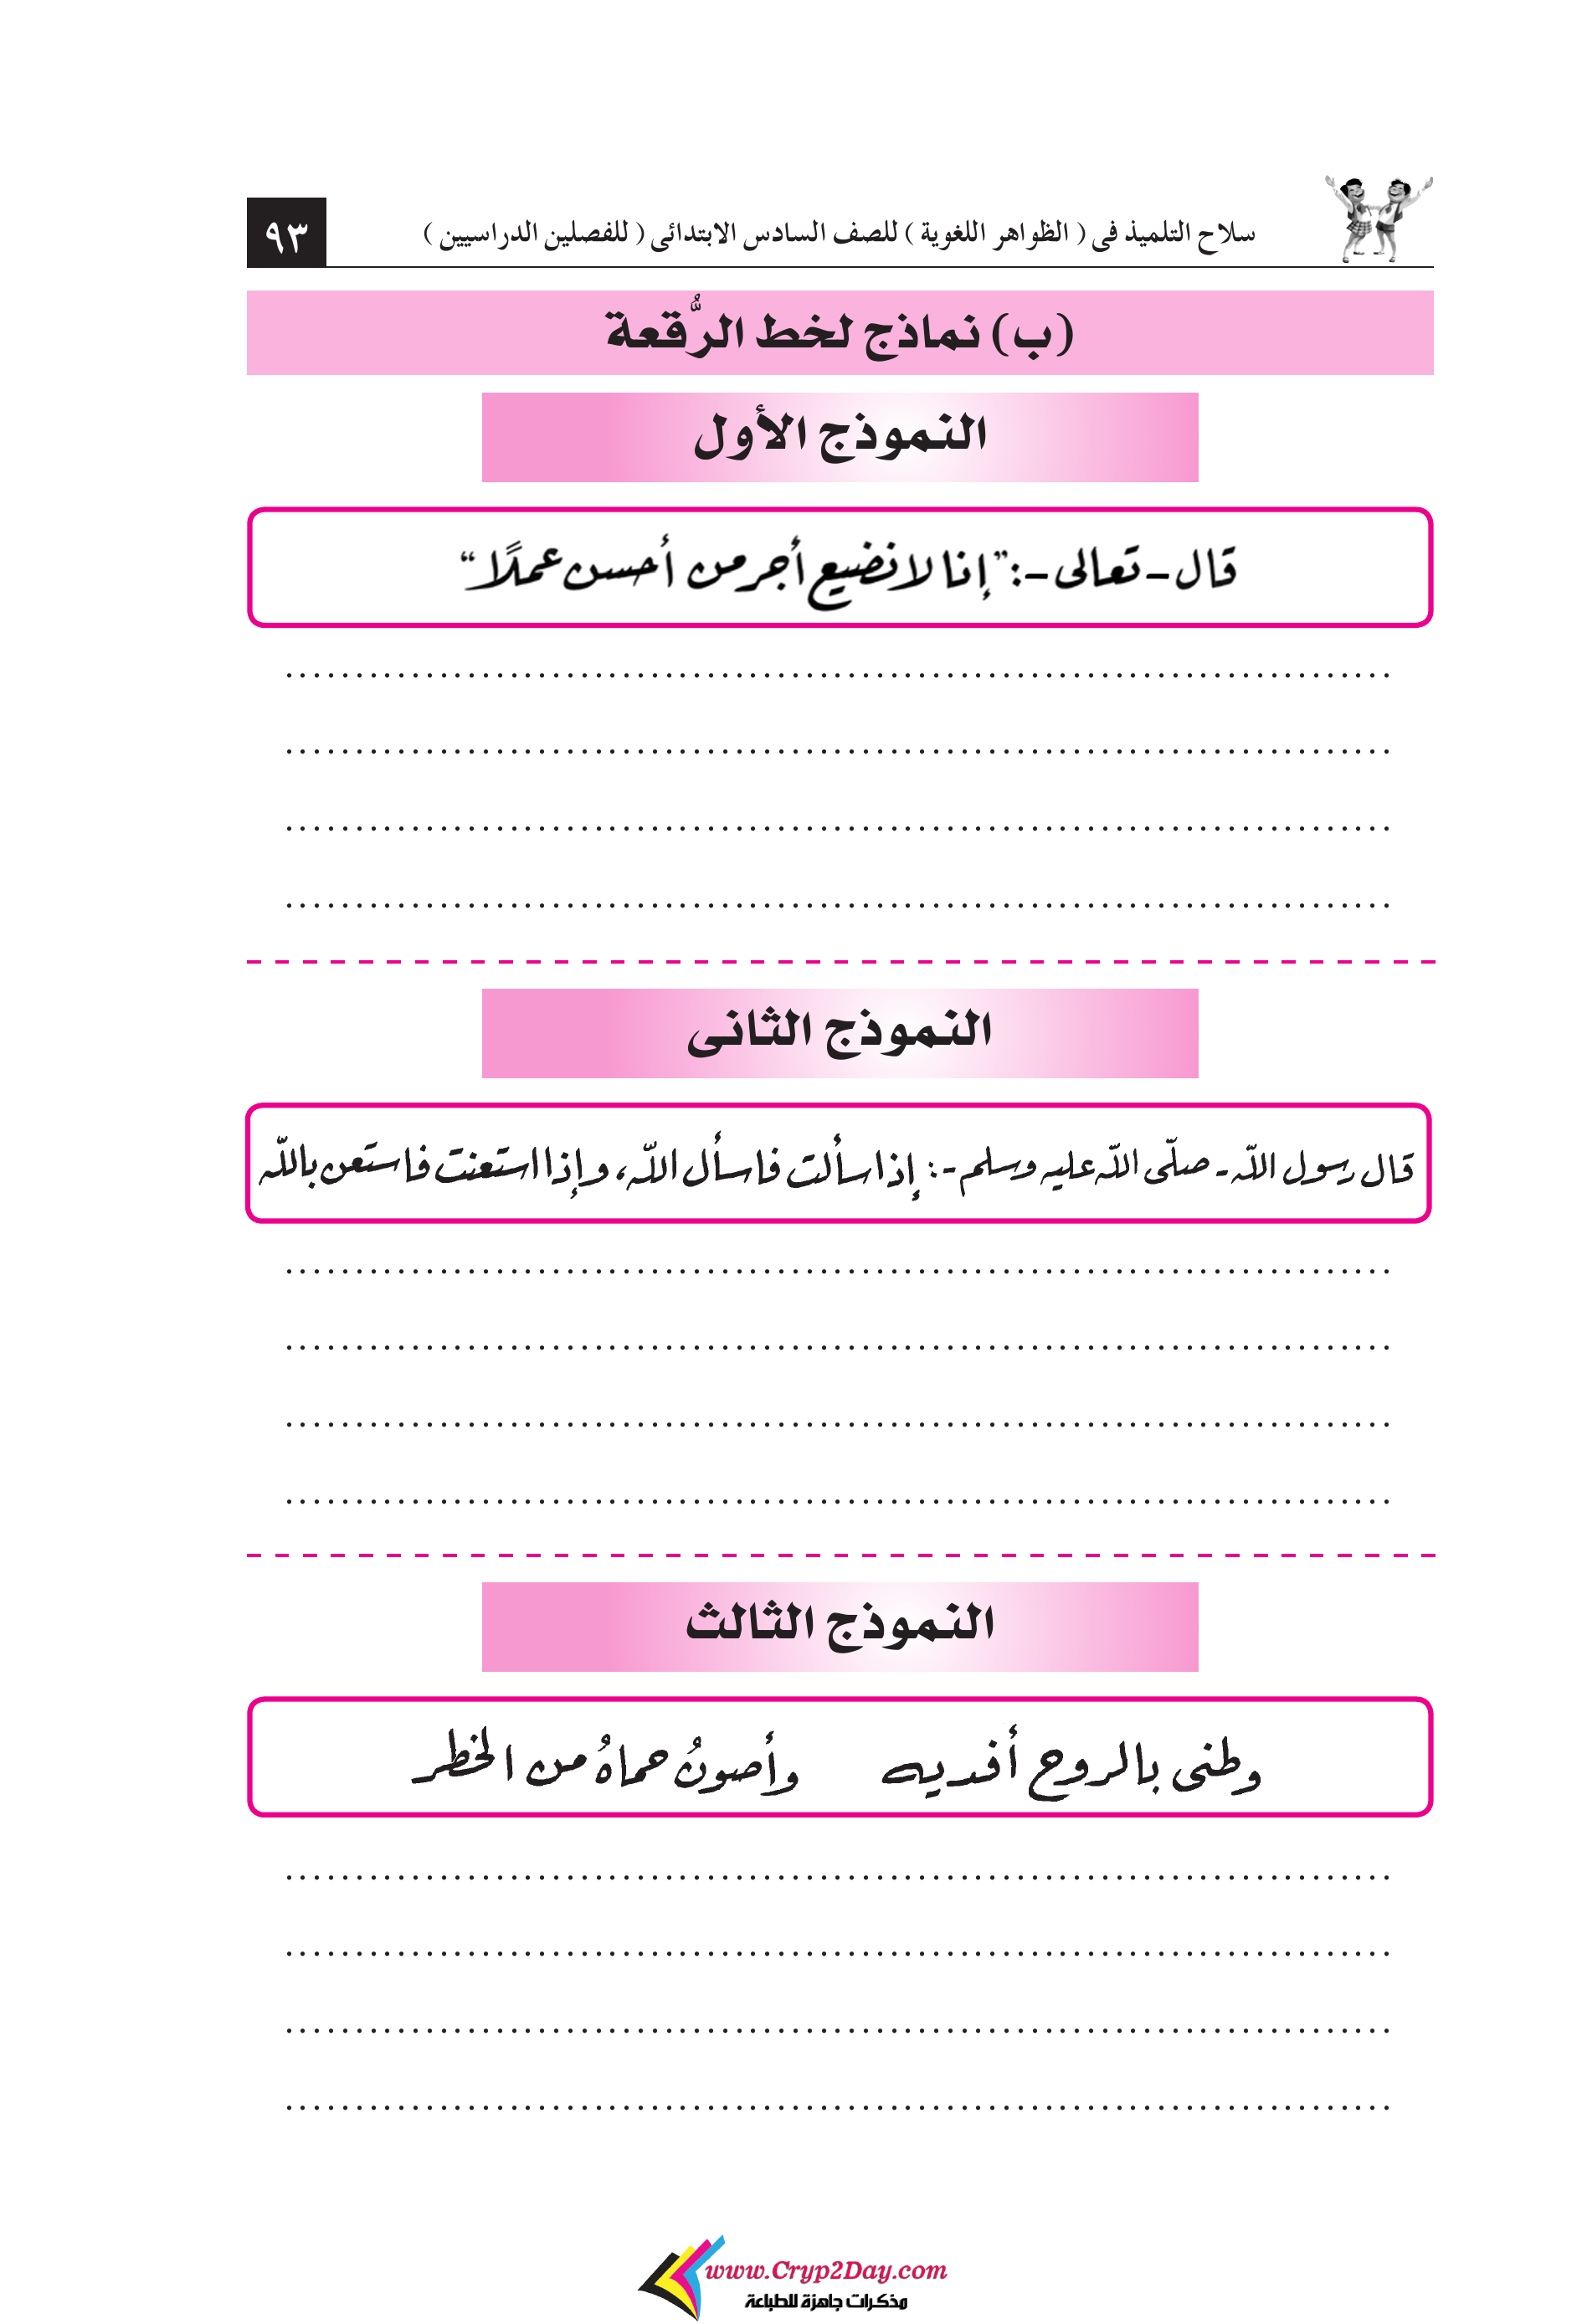 سلاح التلميذ فى ( الظواهر اللغوية ) للصف السادس الابتدائى ( للفصلين الدراسيين )
٩٣
(ب) نماذج لخط الرُّقعة
النموذج الأول
قال - تعالى -: ”إنا لا نضيع أجر من أحسن عملًا“
النموذج الثانى
قال رسول اللّه - صلّى اللّه عليه وسلم -: إذا سألت فاسأل اللّه، وإذا استعنت فاستعن باللّه
النموذج الثالث
وطنى بالروح أفديه وأصونُ حماهُ من الخطر
www.Cryp2Day.com
مذكرات جاهزة للطباعة